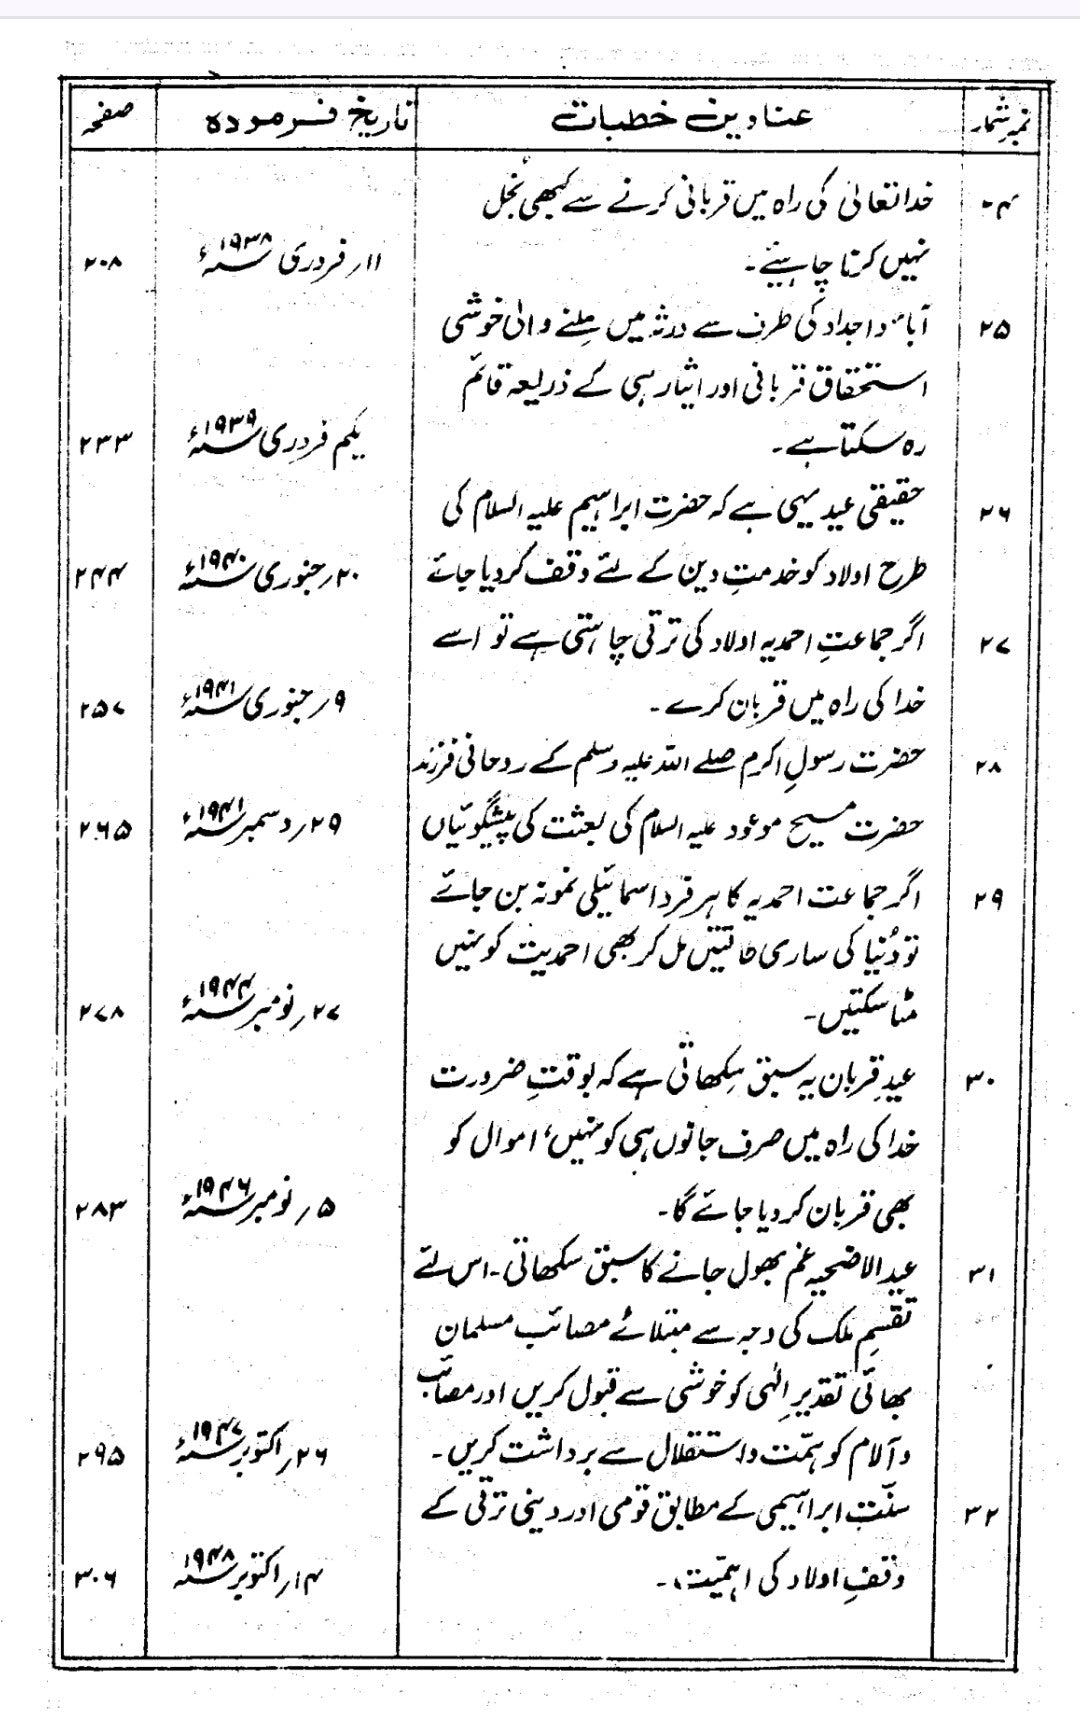 نمبر شمار	عناوین خطبات	تاریخ فرمودہ	صفحہ
۲۴	خدا تعالیٰ کی راہ میں قربانی کرنے سے کبھی بخل
نہیں کرنا چاہیئے۔	۱۱؍ فروری ۱۹۳۸ء	۲۰۸
۲۵	آباء و اجداد کی طرف سے ورثہ میں ملنے والی خوشی
استحقاق قربانی اور ایثار ہی کے ذریعہ قائم
رہ سکتا ہے۔	یکم فروری ۱۹۳۹ء	۲۳۳
۲۶	حقیقی عید یہی ہے کہ حضرت ابراہیم علیہ السلام کی
طرح اولاد کو خدمتِ دین کے لئے وقف کر دیا جائے	۲۰؍ جنوری ۱۹۴۰ء	۲۴۴
۲۷	اگر جماعتِ احمدیہ اولاد کی ترقی چاہتی ہے تو اسے
خدا کی راہ میں قربان کرے۔	۹؍ جنوری ۱۹۴۱ء	۲۵۷
۲۸	حضرت رسولِ اکرم صلے اللہ علیہ وسلم کے روحانی فرزند
حضرت مسیح موعود علیہ السلام کی بعثت کی پیشگوئیاں	۲۹؍ دسمبر ۱۹۴۱ء	۲۶۵
۲۹	اگر جماعت احمدیہ کا ہر فرد اسمائیلی نمونہ بن جائے
تو دُنیا کی ساری طاقتیں مل کر بھی احمدیت کو نہیں
مٹا سکتیں۔	۲۷؍ نومبر ۱۹۴۴ء	۲۷۸
۳۰	عیدِ قربان یہ سبق سِکھاتی ہے کہ بوقتِ ضرورت
خدا کی راہ میں صرف جانوں ہی کو نہیں، اموال کو
بھی قربان کر دیا جائے گا۔	۵؍ نومبر ۱۹۴۶ء	۲۸۳
۳۱	عید الاضحیہ غم بھول جانے کا سبق سکھاتی۔ اس لئے
تقسیمِ ملک کی وجہ سے مبتلائے مصائب مسلمان
بھائی تقدیرِ الٰہی کو خوشی سے قبول کریں اور مصائب
و آلام کو ہمّت و استقلال سے برداشت کریں۔	۲۶؍ اکتوبر ۱۹۴۷ء	۲۹۵
۳۲	سنّتِ ابراہیمی کے مطابق قومی اور دینی ترقی کے
وقفِ اولاد کی اہمیّت۔	۱۴؍ اکتوبر ۱۹۴۸	۳۰۶